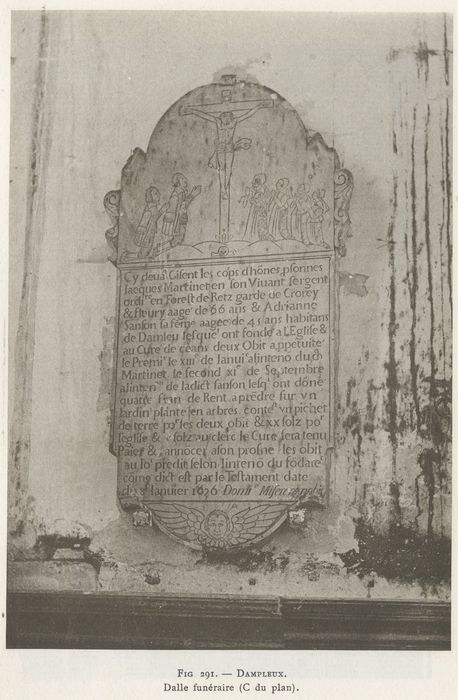 Cy deuāt Gisent les cops d'hōnes psonnes
Jacques Martinet en son Vivant sergent
ordiʳᵉ en Forest de Retz garde de Croiey
& fleury aagé de 66 ans & Adrianne
Sanson sa feme aagee de 45 ans habitans
de Damleu lesqueˡ ont fondé a LEglise &
au Cure de ceans deux Obit a ppetuite
le Premiʳ le xiiiᵉ de Ianuiʳ a linteno dudᶜʰ
Martinet le second xiᵉ de Septembre
a lintenᵒⁿ de ladict sanson lesqˡ ont dōné
quatre de Rent a prēdre sur vn
Iardin plante en arbres conteᵗ vn pichet
de terre poʳ les deux obit & xx solz poʳ
leglise & v solz au clerc le Cure sera tenu
Paier & annocer a son prosne les obit
au Ioʳ predit selon linteno du fōdareʳ
come dict est par le Testament date
du 8 Ianuier 1636
FIG. 291. — DAMPLEUX.
Dalle funéraire (C du plan).